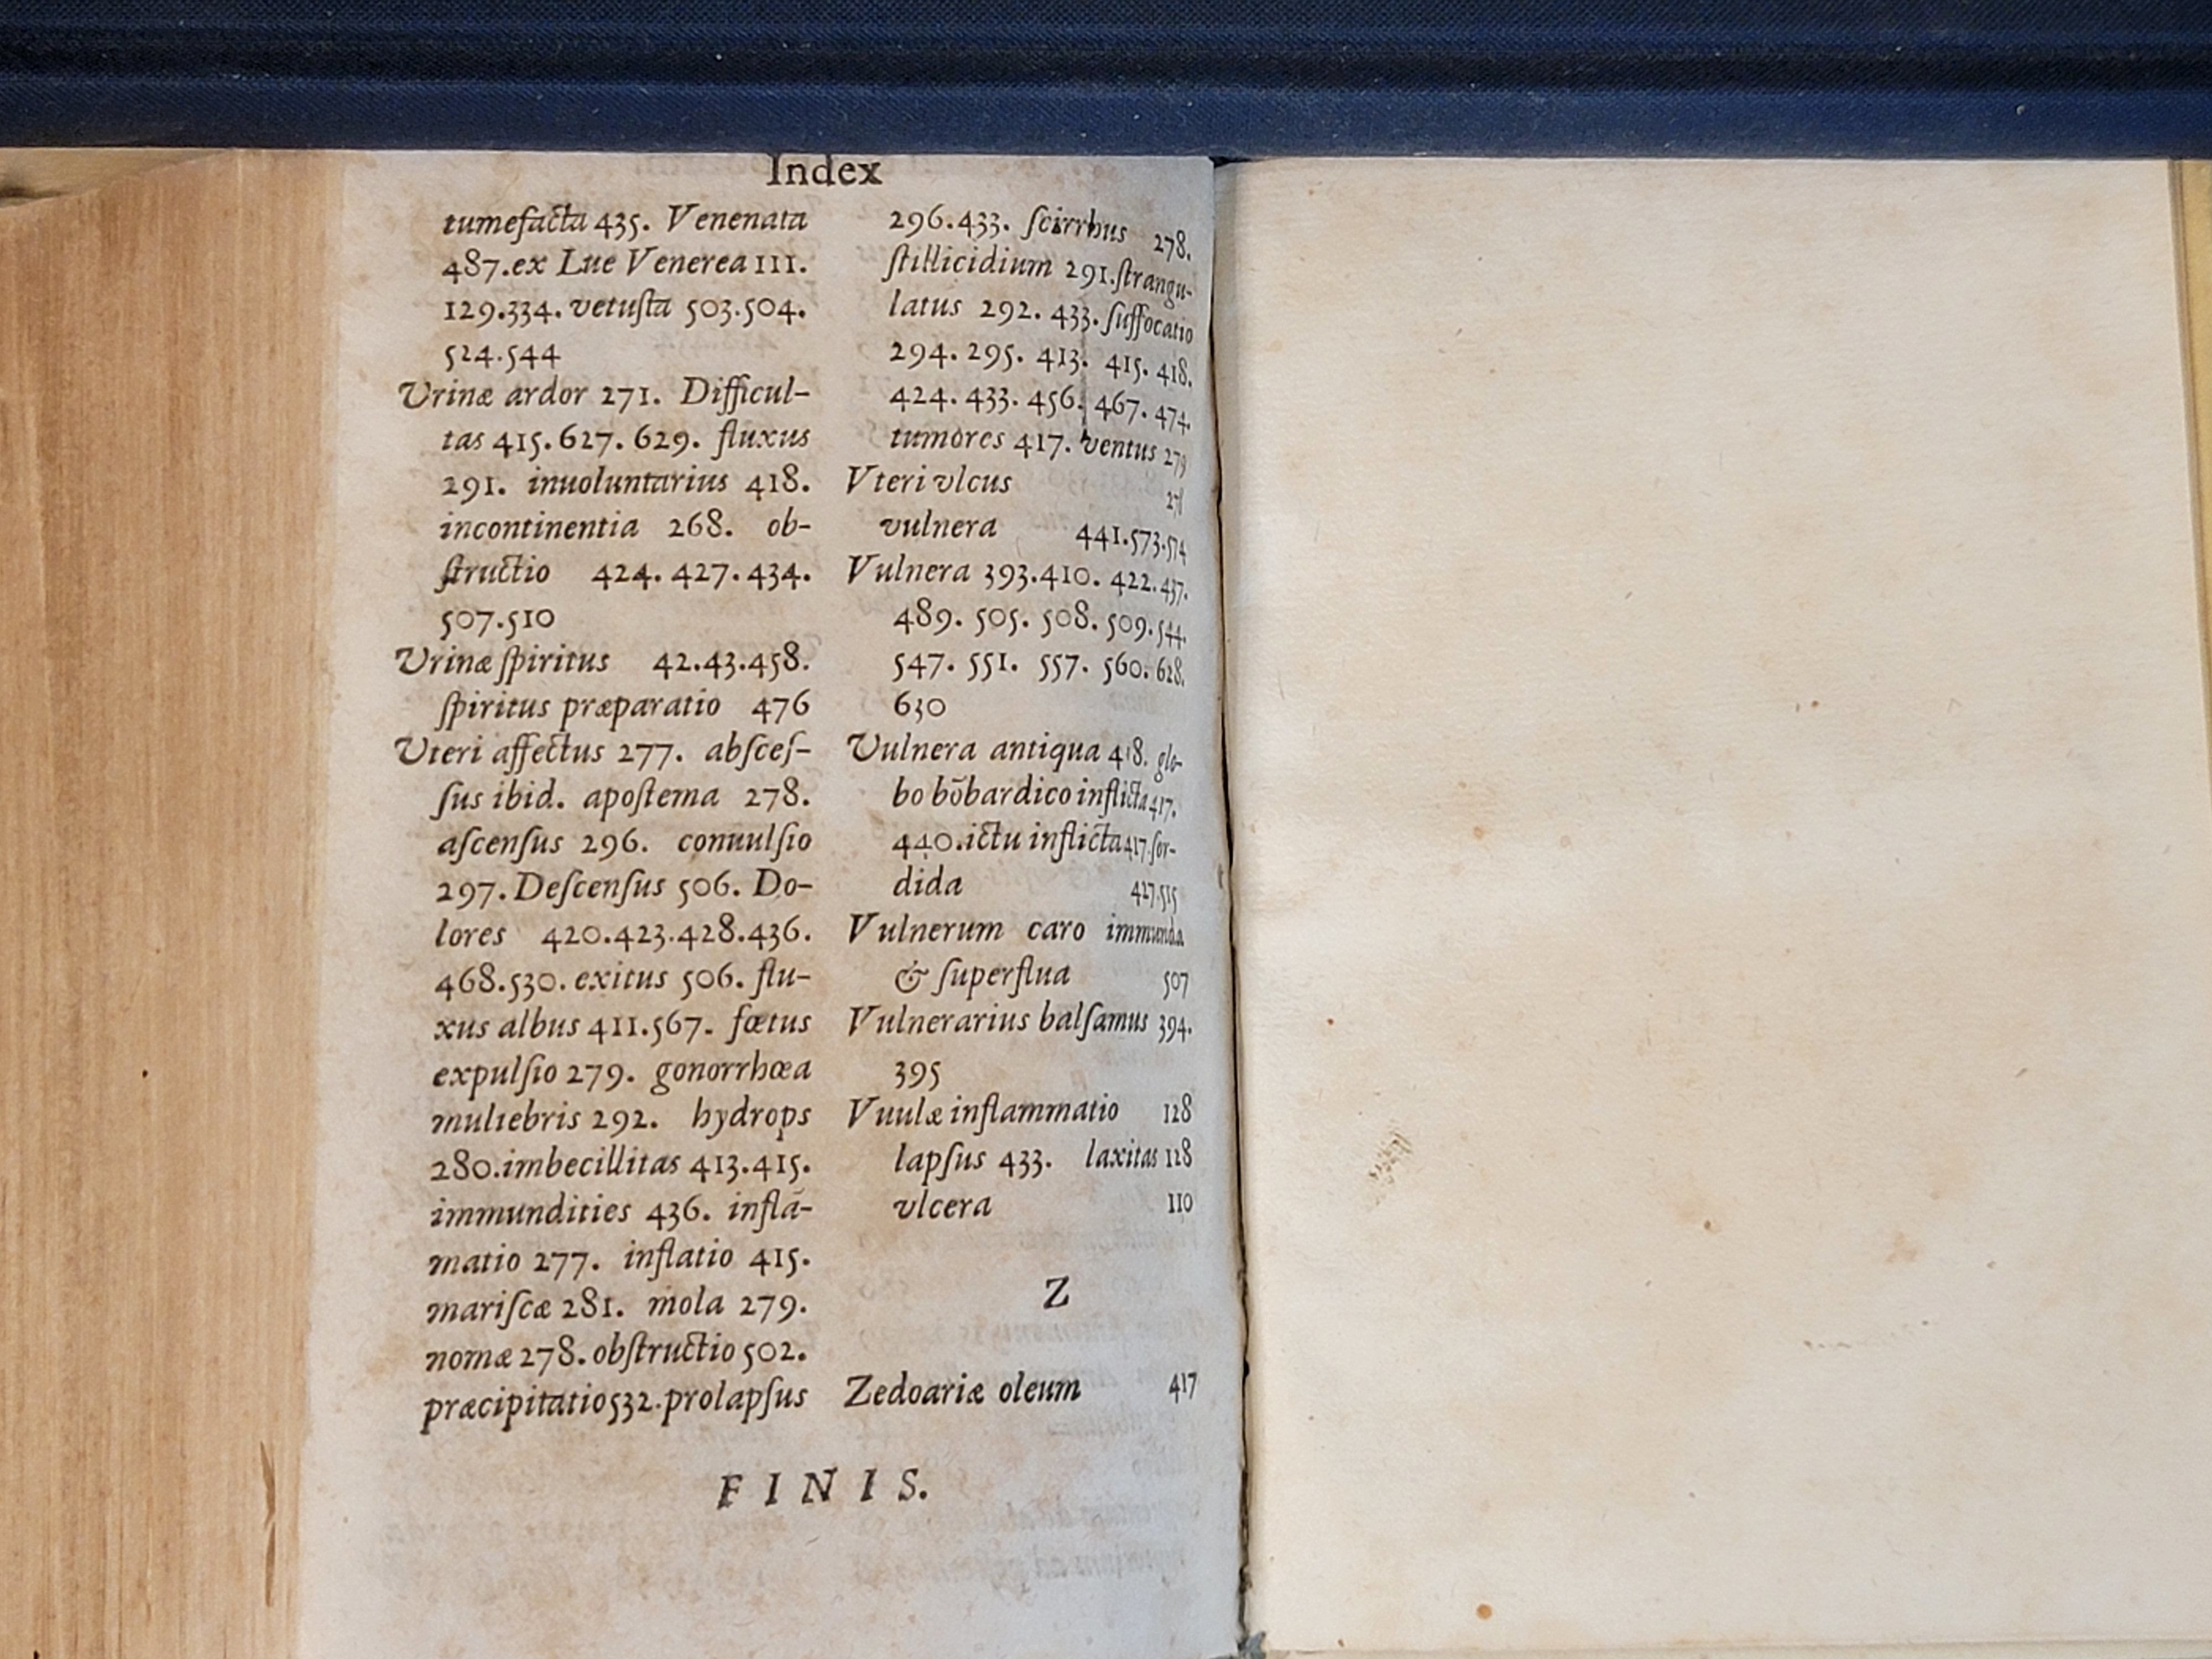 Index
tumefacta 435. Venenata
487.ex Lue Venerea 111.
129.334. vetuſta 503.504.
524.544
Urinæ ardor 271. Difficul-
tas 415.627.629. fluxus
291. inuoluntarius 418.
incontinentia 268. ob-
ſtructio 424.427.434.
507.510
Urinæ ſpiritus 42.43.458.
ſpiritus præparatio 476
Uteri affectus 277. abſceſ-
ſus ibid. apoſtema 278.
aſcenſus 296. conuulſio
297. Deſcenſus 506. Do-
lores 420.423.428.436.
468.530. exitus 506. flu-
xus albus 411.567. fœtus
expulſio 279. gonorrhœa
muliebris 292. hydrops
280.imbecillitas 413.415.
immundities 436. inflā-
matio 277. inflatio 415.
mariſcæ 281. mola 279.
nomæ 278. obſtructio 502.
præcipitatio 532. prolapſus
296.433. ſcirrhus 278.
ſtillicidium 291. ſtrangu-
latus 292. 433. ſuffocatio
294. 295. 413. 415. 418.
424. 433. 456. 467. 474.
tumores 417. ventus 279
Vteri vlcus
vulnera 441.573.574
Vulnera 393.410. 422.437.
489. 505. 508. 509. 544.
547. 551. 557. 560. 628.
630
Vulnera antiqua 418. glo-
bo bōbardico inflicta 417.
440. ictu inflicta 417. ſor-
dida 427.515
Vulnerum caro immunda
& ſuperflua 507
Vulnerarius balſamus 394.
395
Vuulæ inflammatio 128
lapſus 433. laxitas 128
vlcera 110
Z
Zedoariæ oleum 417
FINIS.